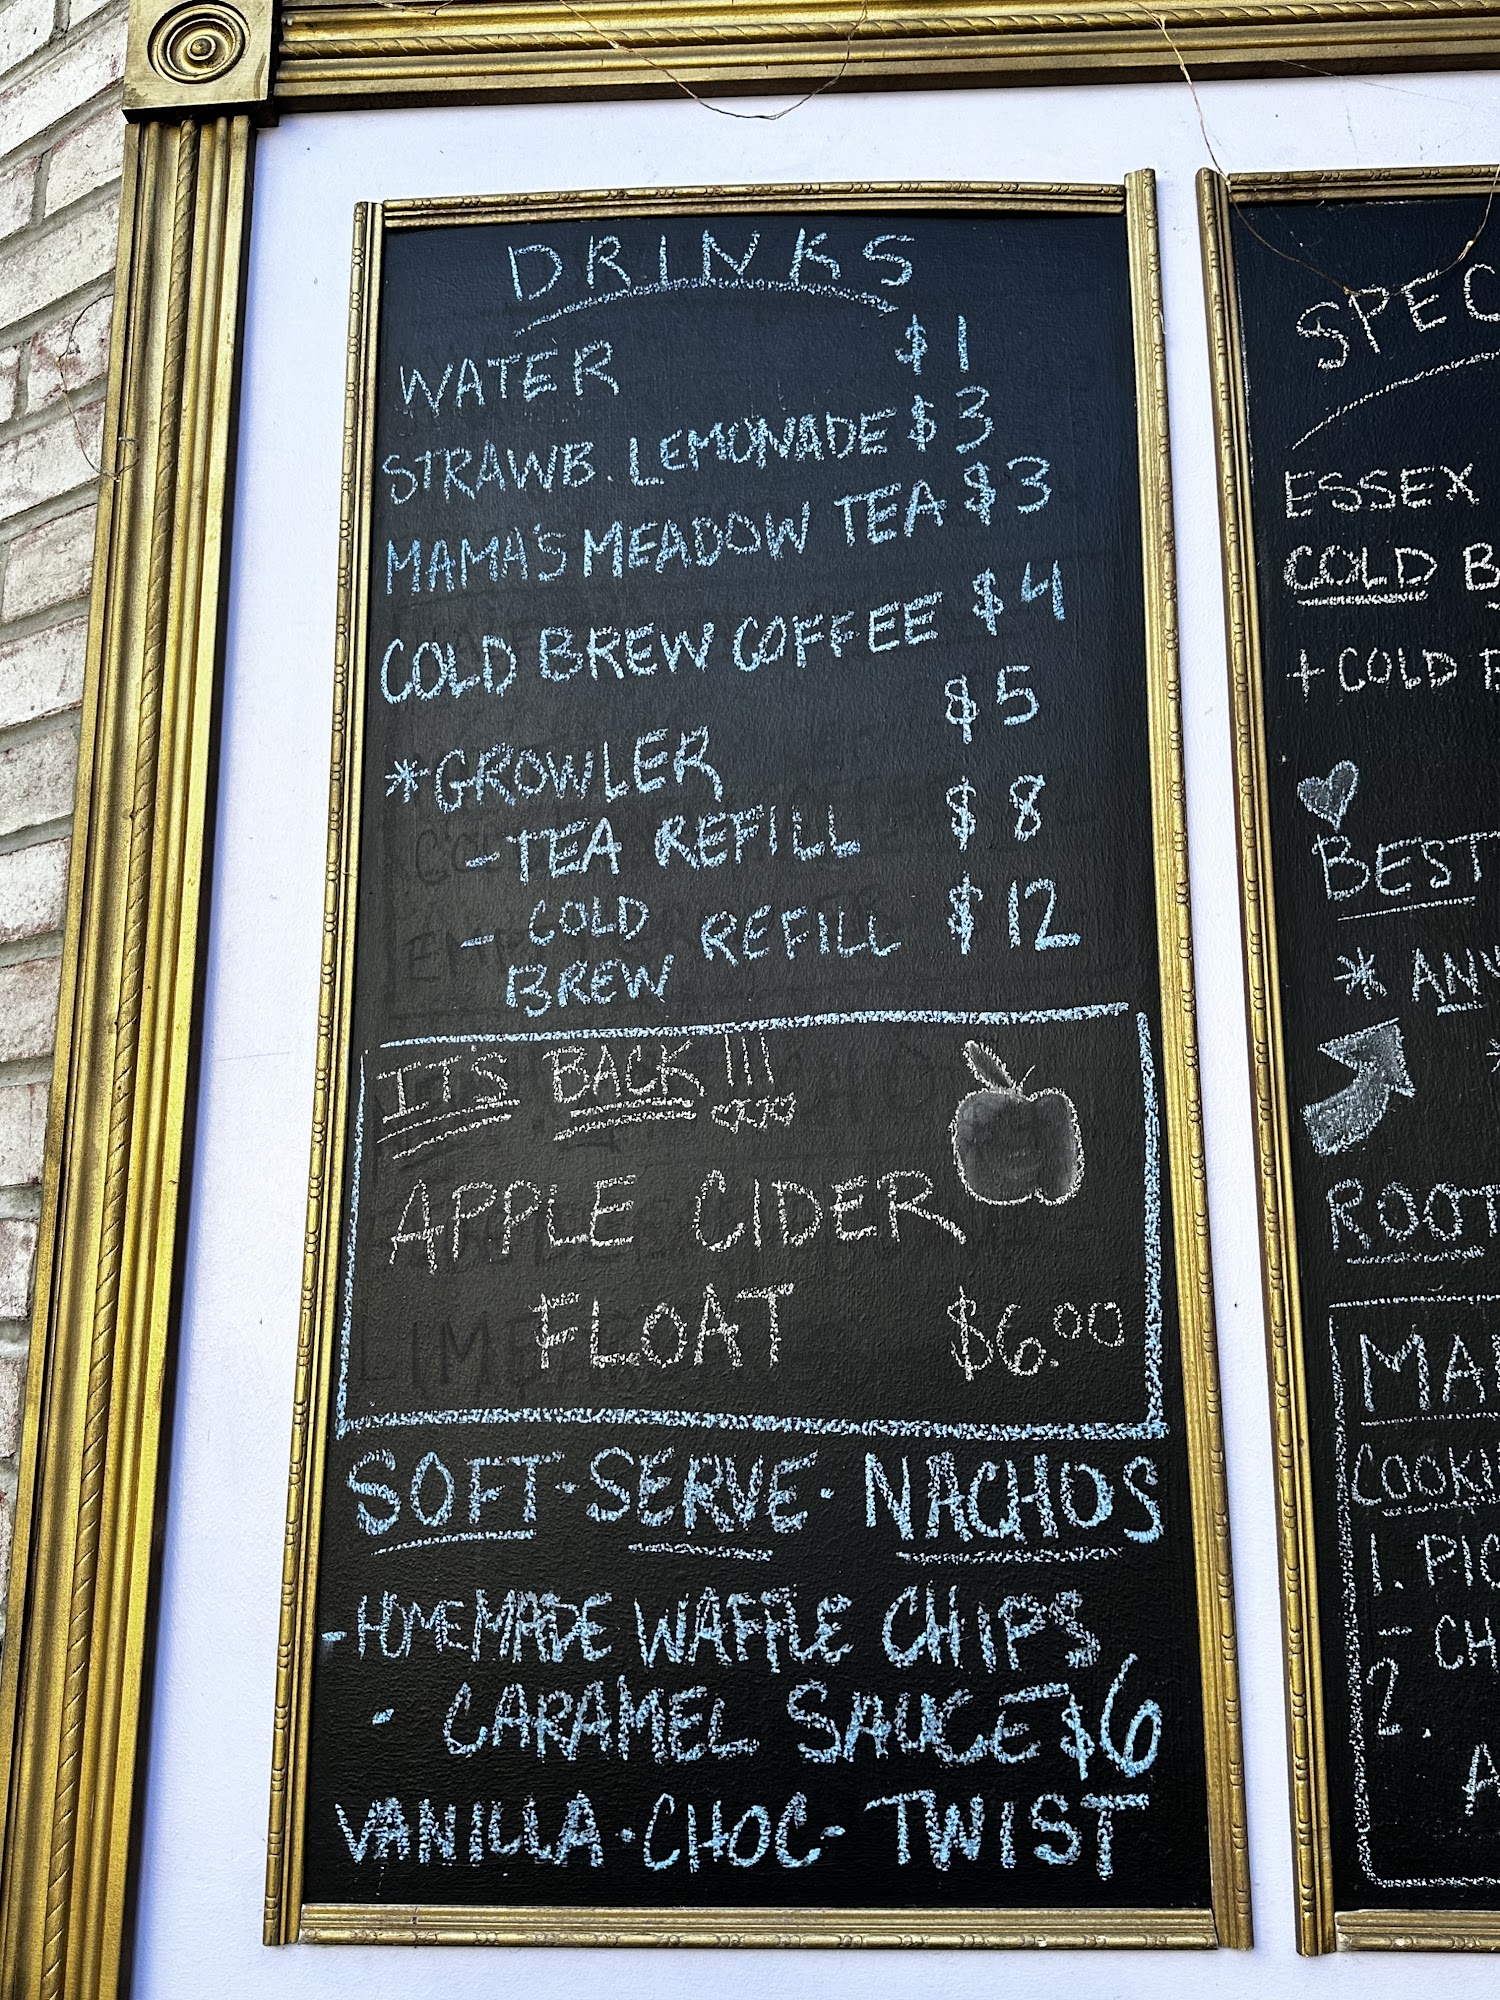 DRINKS
WATER $1
STRAWB. LEMONADE $3
MAMA'S MEADOW TEA $3
COLD BREW COFFEE $4
*GROWLER $5
-TEA REFILL $8
- COLD BREW REFILL $12
IT'S BACK!!!
APPLE CIDER
FLOAT $6.00
SOFT-SERVE-NACHOS
-HOMEMADE WAFFLE CHIPS
- CARAMEL SAUCE $6
VANILLA-CHOC-TWIST
ESSEX
COLD
+COLD
BEST
*
ROOT
1.
-
2.